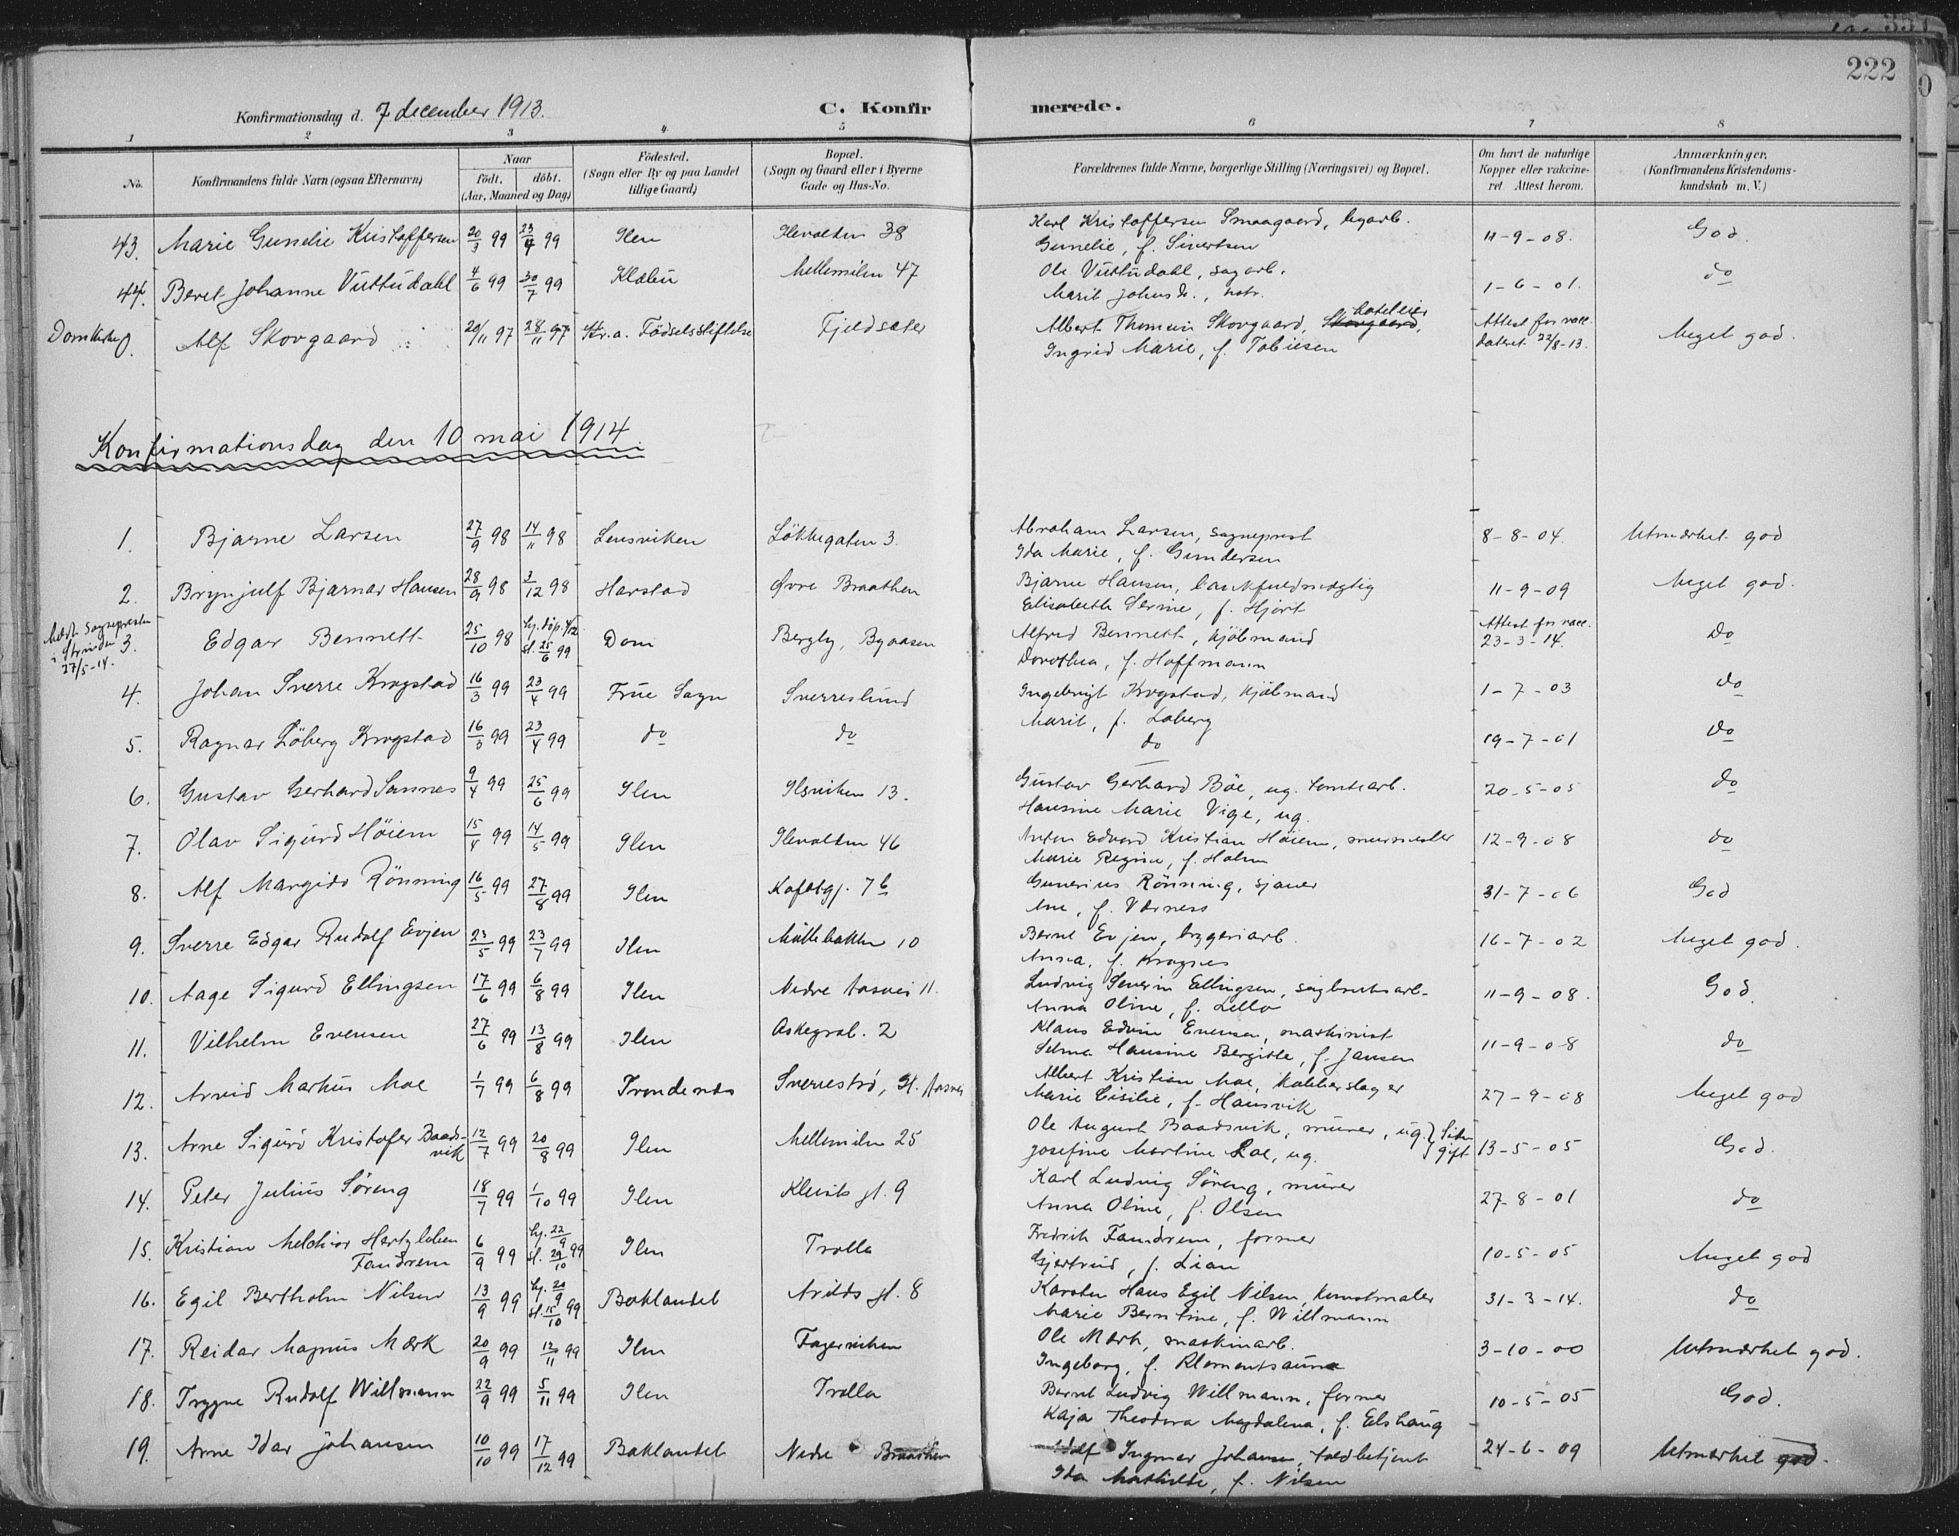 222
Konfirmationsdag d. 7 december 1913.
C. Konfirmerede.
1 2 3 4 5 6 7 8
No. Konfirmandens fulde Navn (ogsaa Efternavn) Naar født. døbt. (Aar, Maaned og Dag) Födested. (Sogn eller By og paa Landet tillige Gaard) Bopæl. (Sogn og Gaard eller i Byerne Gade og Hus-No. Forældrenes fulde Navne, borgerlige Stilling (Næringsvei) og Bopæl. Om havt de naturlige Kopper eller vakcineret. Attest herom. Anmærkninger. (Konfirmandens Kristendomskundskab m. V.)
43. Marie Gunelie Kristoffersen 20/3 99 23/4 99 Ilen Ilevolden 38 Karl Kristoffersen Smaagaard, byarb. 11-9-08. God.
Gunelie, f. Sivertsen
44. Beret Johanne Vuttudahl 4/6 99 30/7 99 Klæbu Mellemilen 47 Ole Vuttudahl, sagarb. 1-6-01. do
Marit Johnsd., hstr.
Domkirke Alf Skovgaard 20/11 97 28/11 97 Kr.a. Fødselsstiftelse Fjeldsæter Albert Skovgaard, hoteleier Attest for vacc. dateret 22/8-13. Meget god.
Ingrid Marie, f. Tobiesen
Konfirmationsdag den 10 mai 1914
1. Bjarne Larsen 27/9 98 14/11 98 Lensviken Løkkegaten 3. Abraham Larsen, sogneprest 8-8-04. Utmærket god
Ida Marie, f. Gundersen
2. Brynjulf Bjarnar Hansen 28/9 98 3/12 98 Harstad Øvre Braathen Bjarne Hansen, bankfuldmægtig 11-9-09 Meget god.
Elisabeth Serine, f. Hjort
3. Edgar Bennett 25/10 98 hj. døp. st. 25/6 99 Dom Bergly, Byaasen Alfred Bennett, kjøbmand Attest for vacc. 23-3-14. Do
Meddt. sognepresten i Strinden 27/5-14.
Dorothea, f. Hoffmann
4. Johan Sverre Krogstad 16/3 99 23/4 99 Frue Sogn Sverreslund Ingebrigt Krogstad, kjøbmand 1-7-03 do
Marit, f. Løberg
5. Ragnar Løberg Krogstad 16/3 99 23/4 99 do do do 19-7-01 do
6. Gustav Gerhard Sannes 9/4 99 25/6 99 Ilen Ilsviken 13. Gustav Gerhard Böe, ug. tomtearb. 20-5-05 do
Hansine Marie Vige, ug.
7. Olav Sigurd Höiem 15/4 99 14/5 99 Ilen Ilevolden 46 Anton Edvard Kristian Höiem, murmester 12-9-08 do
Marie Regine, f. Holm
8. Alf Margido Rönning 16/5 99 27/8 99 Ilen 7 b Gunerius Rönning, sjauer 31-7-06 God
Ane, f. Værness
9. Sverre Edgar Rudolf Evjen 23/5 99 23/7 99 Ilen Møllebakken 10 Bernt Evjen, bryggeriarb. 16-7-02 Meget god.
Anna, f. Kragnes
10. Aage Sigurd Ellingsen 17/6 99 6/8 99 Ilen Nedre Aasvei 11. Ludvig Severin Ellingsen, sagbruksarb. 11-9-08. God
Anna Oline, f. Lello
11. Vilhelm Evensen 27/6 99 13/8 99 Ilen Askegrab. 2 Klaus Edvin Evensen, maskinist 11-9-08 do
Selma Hansine Bergitte, f. Jansen
12. Arvid Markus Moe 1/7 99 6/8 99 Trondenes Sverresbro, Gl. Aasvei Albert Kristian Moe, kobberslager 27-9-08 Meget god
Marie Cisilie, f. Hansvik
13. Arne Sigurd Kristofer Baadsvik 12/7 99 20/8 99 Ilen Mellemilen 25 Ole August Baadsvik, murer, ug. } Siden gift 13-5-05 God.
Josefine Martine Loe, ug.
14. Peter Julius Söreng 18/7 99 1/10 99 Ilen Kleists gt. 9 Karl Ludvig Söreng, murer 27-8-01 do
Anna Oline, f. Olsen
15. Kristian Melchior Hertzleben Fandrem 6/9 99 hj. 22/9 st. 29/10 99 Ilen Trolla Fredrik Fandrem, former 10-5-05 Meget god
Gjertrud, f. Lian
16. Egil Bertholm Nilsen 13/9 99 hj. 20/9 st. 15/10 99 Baklandet Arilds gt. 8 Karsten Hans Egil Nilsen, kunstmaler 31-3-14. do
Marie Berntine, f. Willmann
17. Reidar Magnus Mærk 20/9 99 12/11 99 Ilen Fagerviken Ole Mærk, maskinarb. 3-10-00 Utmærket god.
Ingeborg, f. Klementsaune
18. Trygve Rudolf Willmann 22/9 99 5/11 99 Ilen Trolla Bernt Ludvig Willmann, former 10-5-05 God.
Kaja Theodora Magdalena, f. Elshaug
19. Arne Idar Johansen 10/10 99 17/12 99 Baklandet Nedre Braathen Ingmar Johansen, toldbetjent 24-6-09 Utmærket god.
Ida Mathilde, f. Nilsen